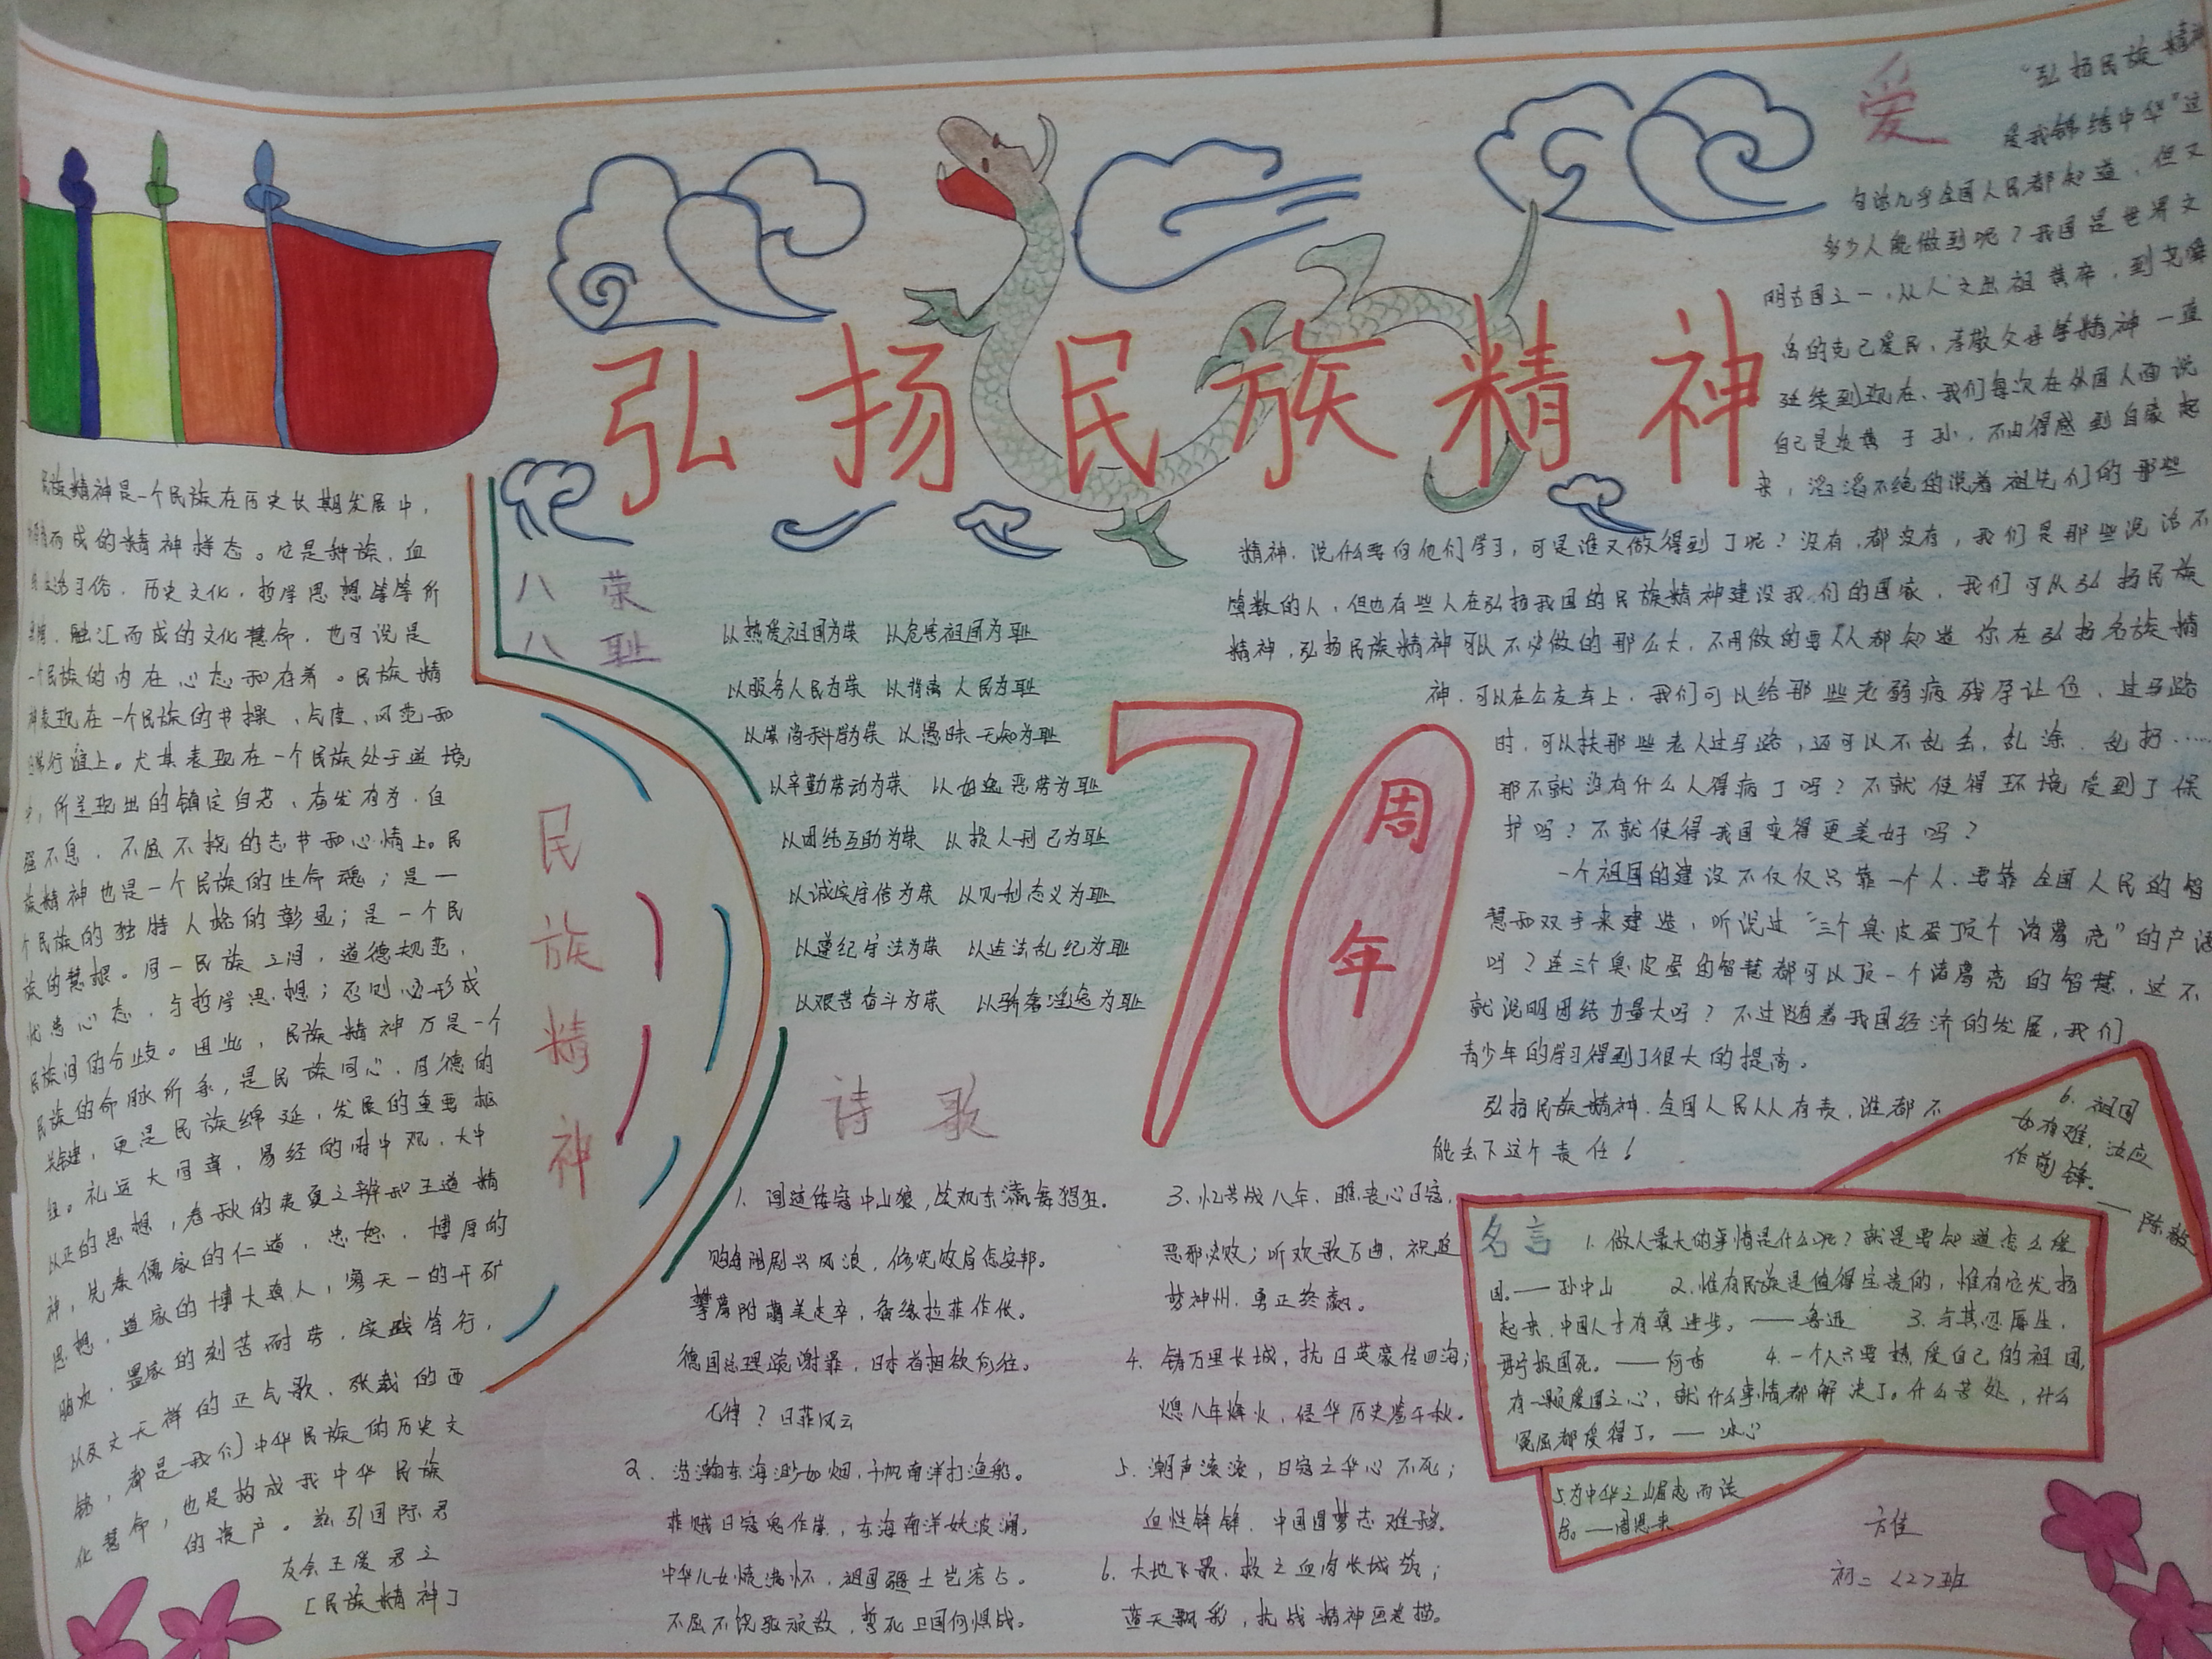 弘扬民族精神
民族精神是一个民族在历史长期发展中，
而成的精神样态。它是种族、血
生活习俗、历史文化、哲学思想等等所
融汇而成的文化慧命，也可说是
一个民族的内在心态和存养。民族精
神表现在一个民族的节操、气度、风范和
行谊上。尤其表现在一个民族处于逆境
中，所呈现出的镇定自若、奋发有为、自
强不息、不屈不挠的志节和心情上。民
族精神也是一个民族的生命魂；是一
个民族的独特人格的彰显；是一个民
族的慧根。同一民族之间，道德规范，
忧患心态，与哲学思想；否则必形成
民族间的分歧。因此，民族精神乃是一个
民族的命脉所系，是民族同心、同德的
关键，更是民族绵延，发展的重要枢
纽。礼运大同章，易经的时中观，大中
以正的思想，春秋的夷夏之辨和王道精
神，先秦儒家的仁道，忠恕、博厚的
思想，道家的博大真人，寥天一的开旷
胸次，墨家的刻苦耐劳，实践笃行，
以及文天祥的正气歌，张载的西
铭，都是我们中华民族的历史文
化慧命，也是构成我中华民族
的资产。兹引国际君
友会王爱君之
[民族精神]
民族精神
八荣
八耻
以热爱祖国为荣 以危害祖国为耻
以服务人民为荣 以背离人民为耻
以崇尚科学为荣 以愚昧无知为耻
以辛勤劳动为荣 以好逸恶劳为耻
以团结互助为荣 以损人利己为耻
以诚实守信为荣 以见利忘义为耻
以遵纪守法为荣 以违法乱纪为耻
以艰苦奋斗为荣 以骄奢淫逸为耻
70周年
诗歌
1. 闻道倭寇中山狼，笑观东瀛舞猖狂。
购岛闹剧兴风浪，修宪效尤怎安邦。
攀鹰附美走卒，拉菲作伥。
德国总理跪谢罪，日本首相欲何往。
七律？日菲风云
2. 浩瀚东海渺如烟，千帆南洋打渔船。
菲贼日寇鬼作祟，东海南洋妖波澜。
中华儿女情满怀，祖国疆土岂容占。
不屈不饶驱顽敌，誓死卫国何惧战。
3. 忆苦战八年，瞧丧心日寇，
恶邪决败；听欢歌万曲，祝追
梦神州，勇正终赢。
4. 铸万里长城，抗日英豪传四海；
熄八年烽火，侵华历史鉴千秋。
5. 潮声滚滚，日寇之华心不死；
血性铮铮，中国圆梦志难移。
6. 大地飞歌，救之血肉长城筑；
蓝天飘彩，抗战精神画卷描。
爱
“弘扬民族精神
爱我锦绣中华”这
句话几乎全国人民都知道，但又
多少人能做到呢？我国是世界文
明古国之一，从人文始祖黄帝，到尧舜
禹的克己爱民、孝敬父母等精神一直
延续到现在，我们每次在外国人面说
自己是炎黄子孙，不由得感到自豪起
来，滔滔不绝的说着祖先们的那些
精神，说什么要向他们学习，可是谁又做得到了呢？没有，都没有，我们是那些说话不
算数的人，但也有些人在弘扬我国的民族精神建设我们的国家，我们可从弘扬民族
精神，弘扬民族精神可以不必做的那么大，不用做的要人人都知道你在弘扬名族精
神，可以在公交车上，我们可以给那些老弱病残孕让位、过马路
时，可以扶那些老人过马路，还可以不乱丢、乱涂、乱扔……
那不就没有什么人得病了吗？不就使得环境受到了保
护吗？不就使得我国变得更美好吗？
一个祖国的建设不仅仅只靠一个人，要靠全国人民的智
慧和双手来建造，听说过“三个臭皮蛋顶个诸葛亮”的产语
吗？连三个臭皮蛋的智慧都可以顶一个诸葛亮的智慧，这不
就说明团结力量大吗？不过随着我国经济的发展，我们
青少年的学习得到了很大的提高。
弘扬民族精神，全国人民人人有责，谁都不
能丢下这个责任！
名言 1. 做人最大的事情是什么呢？就是要知道怎么爱
国。——孙中山 2. 惟有民族是值得宝贵的，惟有它发扬
起来，中国人才有真进步。——鲁迅 3. 与其忍辱生，
毋宁报国死。——何香 4. 一个人只要热爱自己的祖国，
有一颗爱国之心，就什么事情都解决了。什么苦处，什么
冤屈都受得了。——冰心
5. 为中华之崛起而读
书。——周恩来
6. 祖国
如有难，汝应
作前锋。
——陈毅
初二〈2〉班